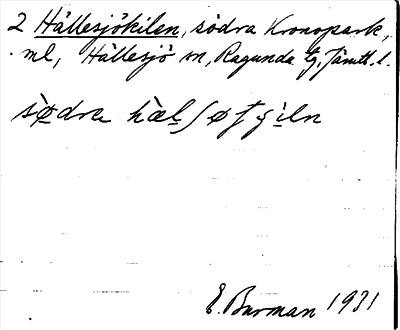 2 Hällesjökilen, södra Kronopark,
ml, Hällesjö sn, Ragunda tg, Jämtl. l.
sø̀dra hæ̀l ʃøtjìln
E. Burman 1931